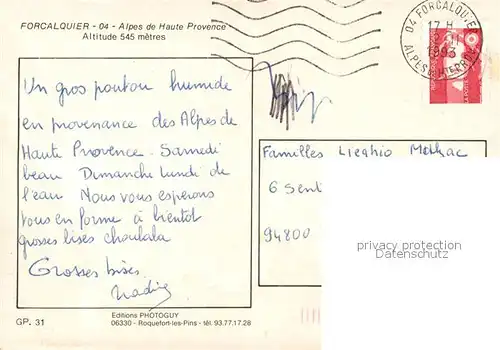 FORCALQUIER - 04 - Alpes de Haute Provence
Altitude 545 mètres
04 FORCALQUIER
17 H
11
1993
ALPES DE HTE PROV.
Un gros poutou humide
en provenance des Alpes de
Haute Provence. Samedi
beau Dimanche lundi de
l'eau Nous vous esperons
tous en forme à bientot
grosses bises choulala
Grosses bises.
Nadine
Familles
6 Senti
94800
privacy protection
Datenschutz
Editions PHOTOGUY
GP. 31
06330 - Roquefort-les-Pins - tél. 93.77.17.28